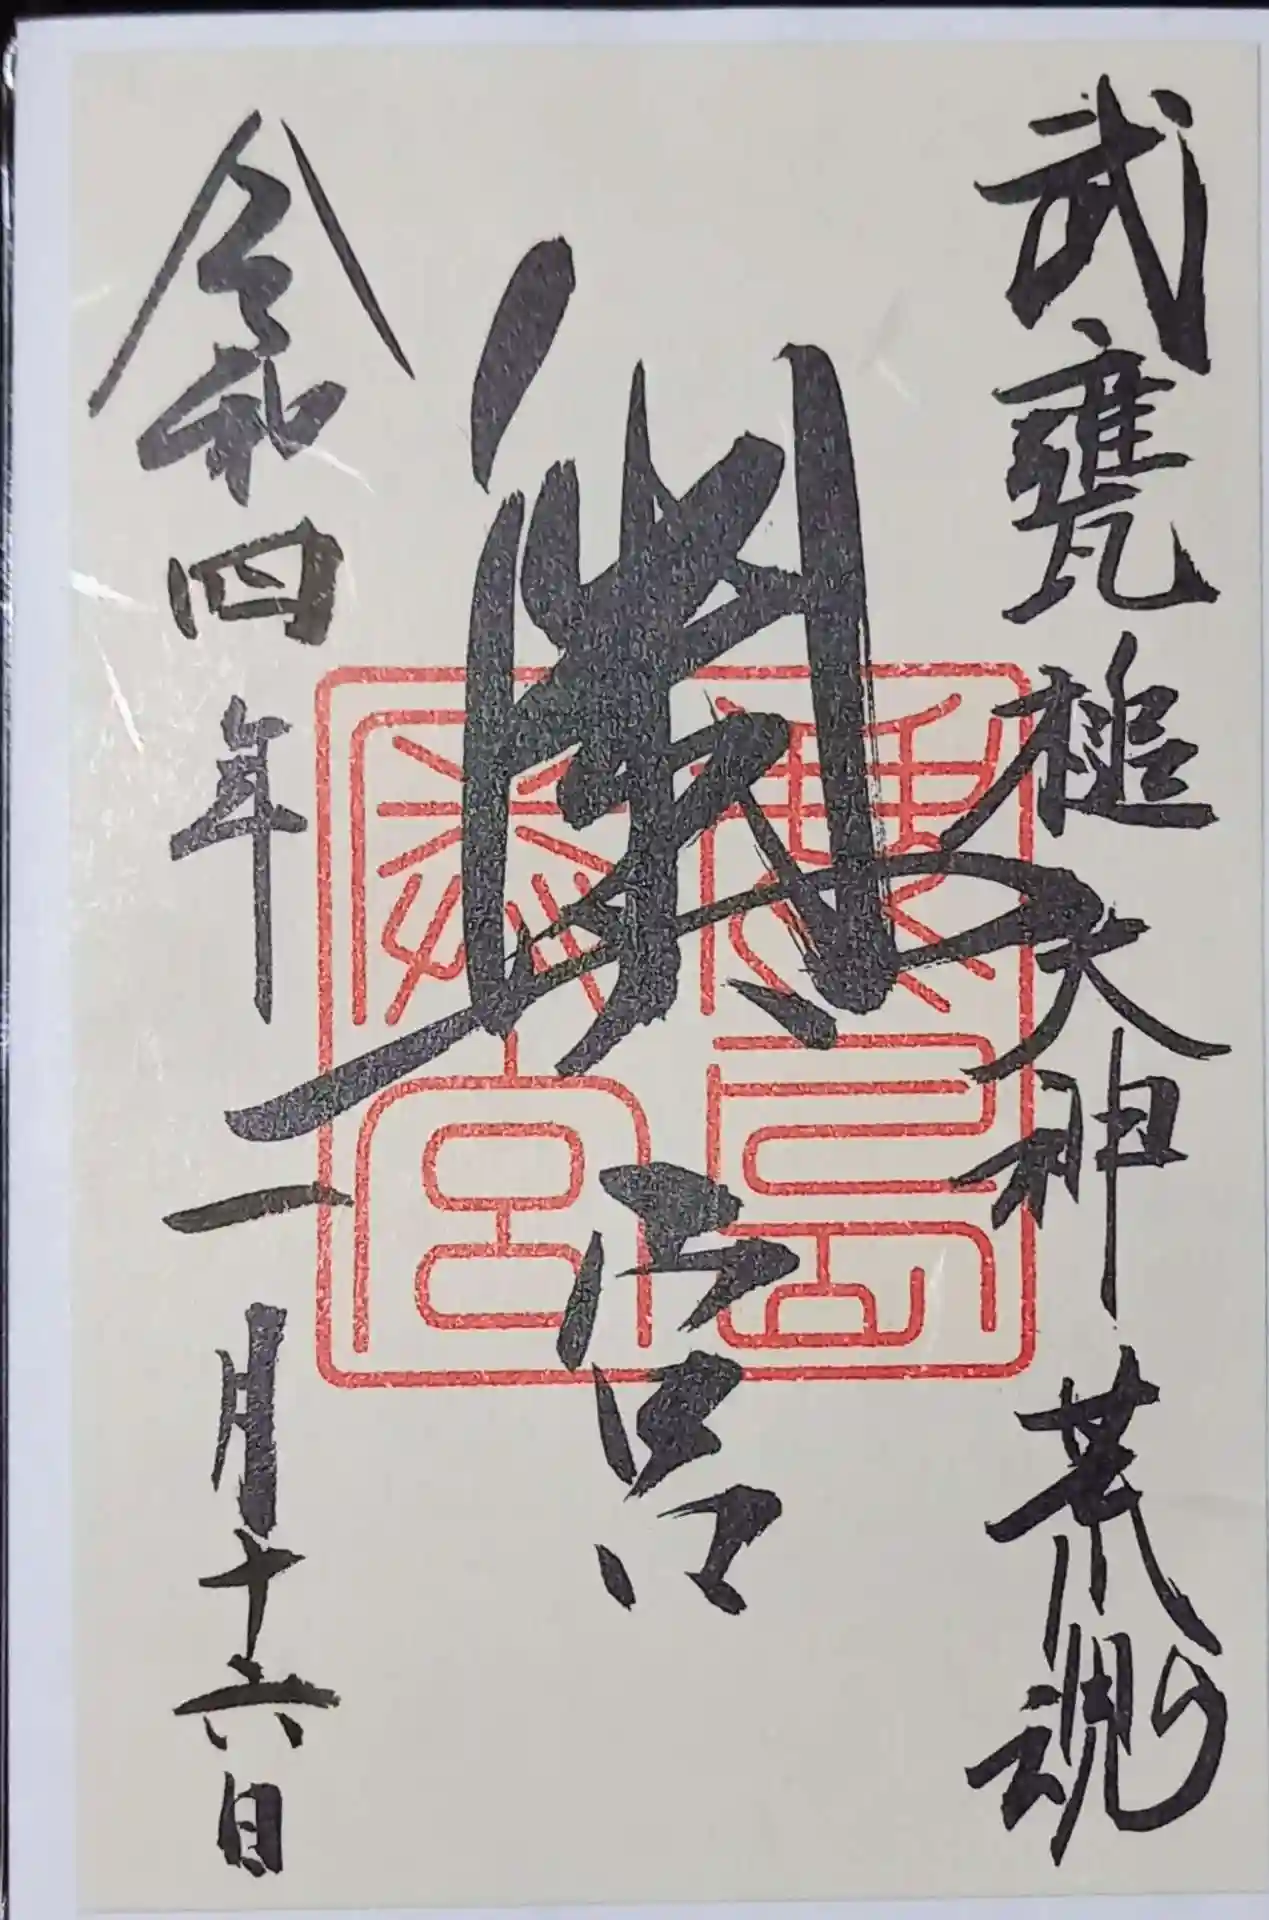 武甕槌大神荒魂
奥宮
鹿島奥宮
令和四年一月十六日